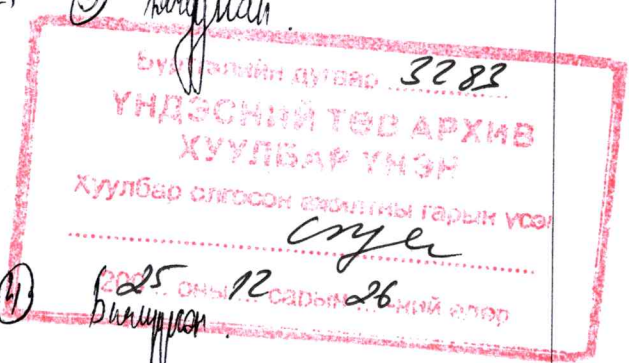 Бүртгэлийн дугаар 3283
ҮНДЭСНИЙ ТӨВ АРХИВ
ХУУЛБАР ҮНЭН
Хуулбар олгосон ажилтны гарын үсэг
2025 оны 12 сарын 26-ний өдөр
4